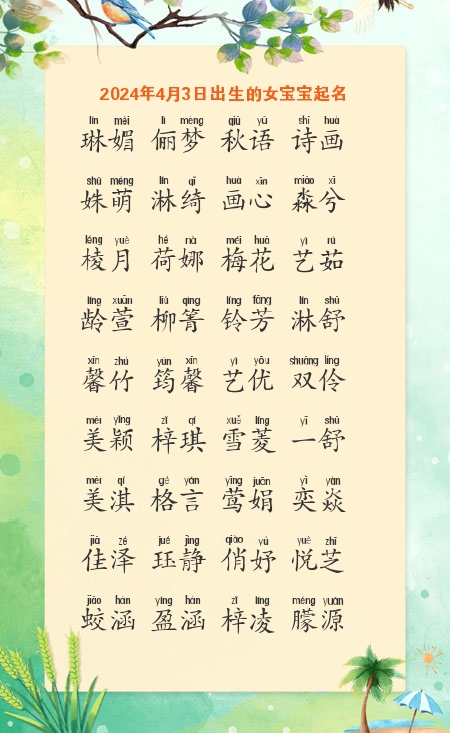 2024年4月3日出生的女宝宝起名
lín měi lì mèng qiū yǔ shī huà
琳媚 俪梦 秋语 诗画
shū méng lín qǐ huà xīn miǎo xī
姝萌 淋绮 画心 淼兮
léng yuè hé nà méi huā yì rú
棱月 荷娜 梅花 艺茹
líng xuān liǔ qìng líng fāng lín shū
龄萱 柳箐 铃芳 淋舒
xīn zhú yún xīn yì yōu shuāng líng
馨竹 筠馨 艺优 双伶
měi yǐng zǐ qí xuě líng yī shū
美颖 梓琪 雪菱 一舒
měi qí gé yán yīng juān yì yàn
美淇 格言 莺娟 奕焱
jiā zé jué jìng qiào yú yuè zhī
佳泽 珏静 俏妤 悦芝
jiāo hán yíng hán zǐ líng méng yuán
蛟涵 盈涵 梓凌 朦源